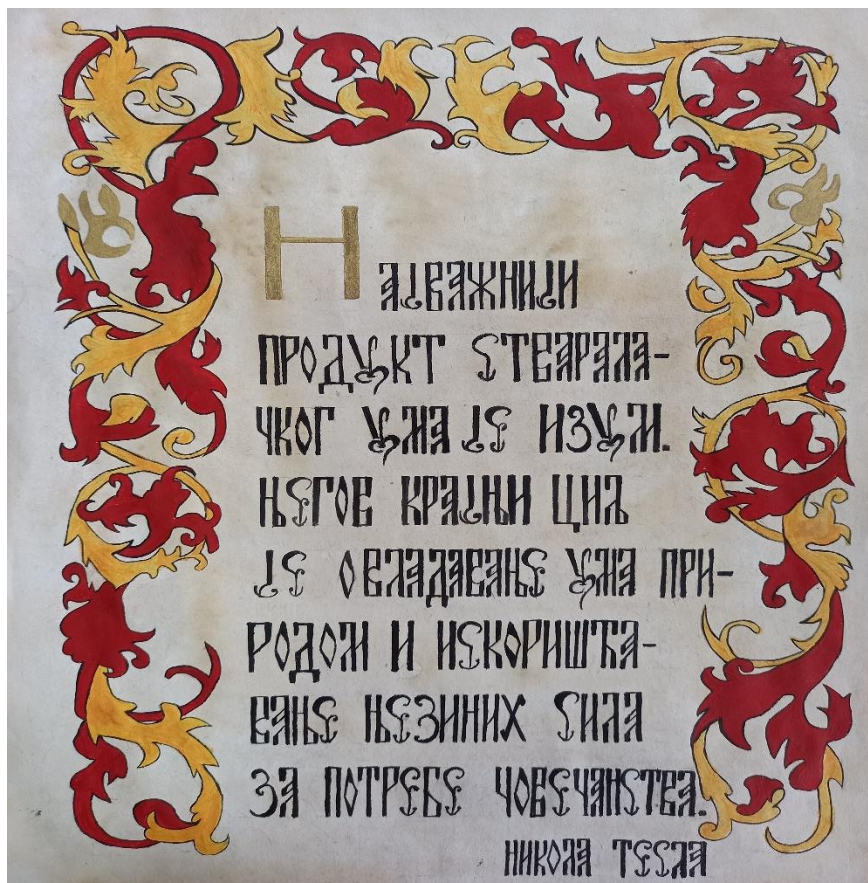 Најважнији
продукт стварала-
чког ума је изум.
Његов крајњи циљ
је овладавање ума при-
родом и искоришћа-
вање њезиних сила
за потребе човечанства.
Никола Тесла